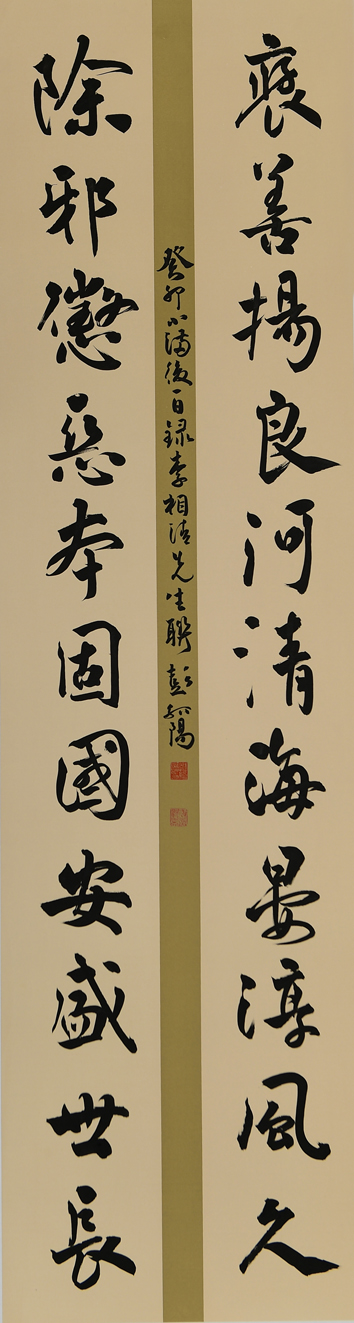 褒善揚良河清海晏淳風久
癸卯小满後一日録李相潔先生聯 彭
除邪懲惡本固國安盛世長